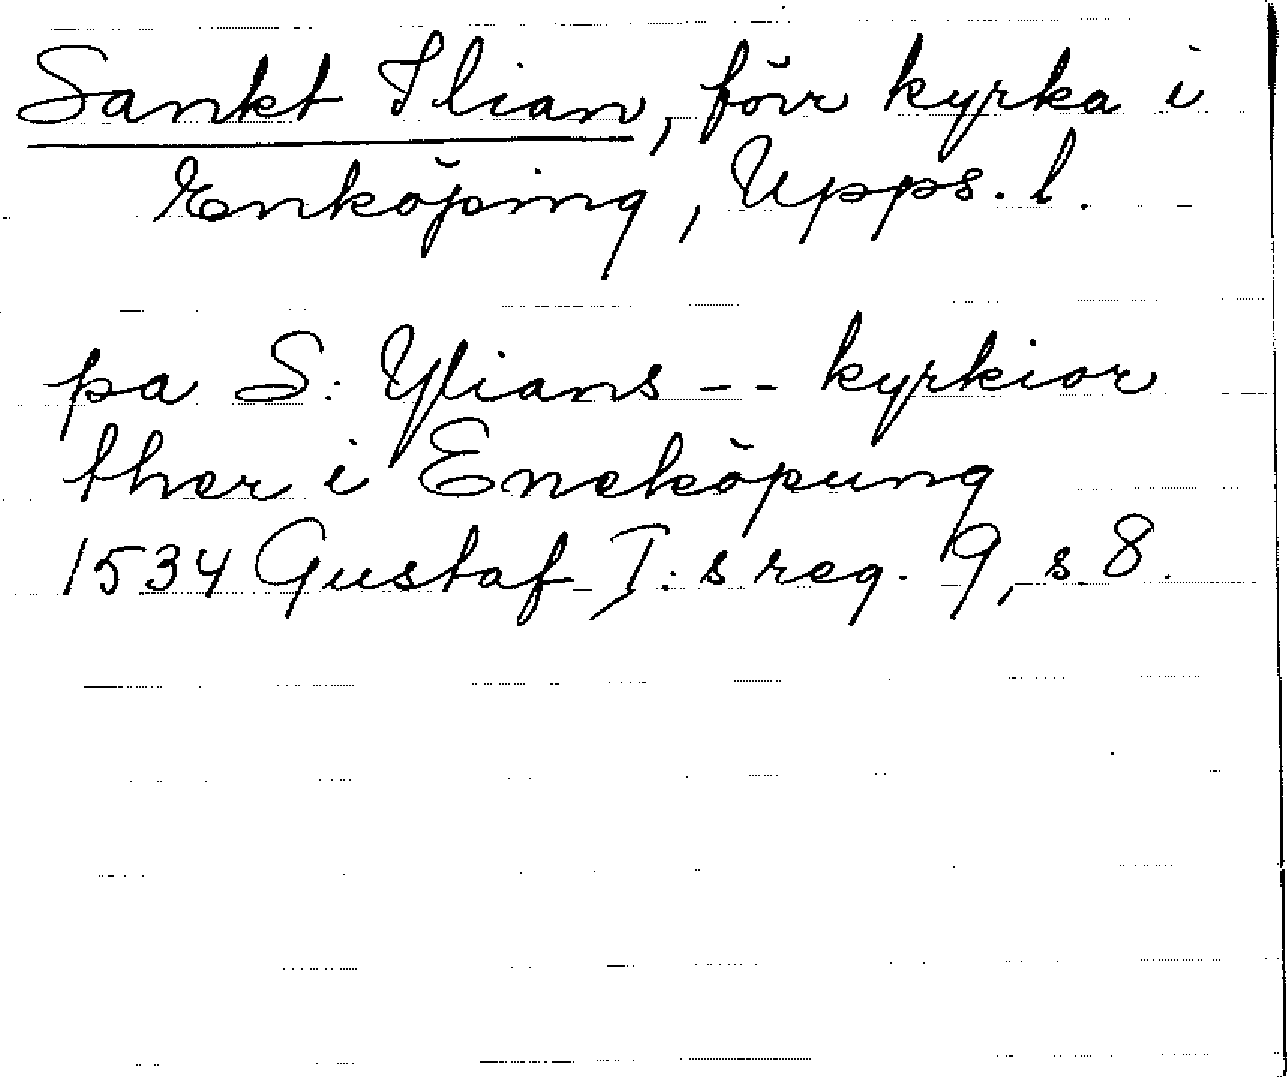 Sankt Ilian, förr kyrka i
Enköping, Upps. l.
pa S: Ylians -- kyrkior
ther i Eneköpung
1534 Gustaf I:s reg. 9, s. 8.